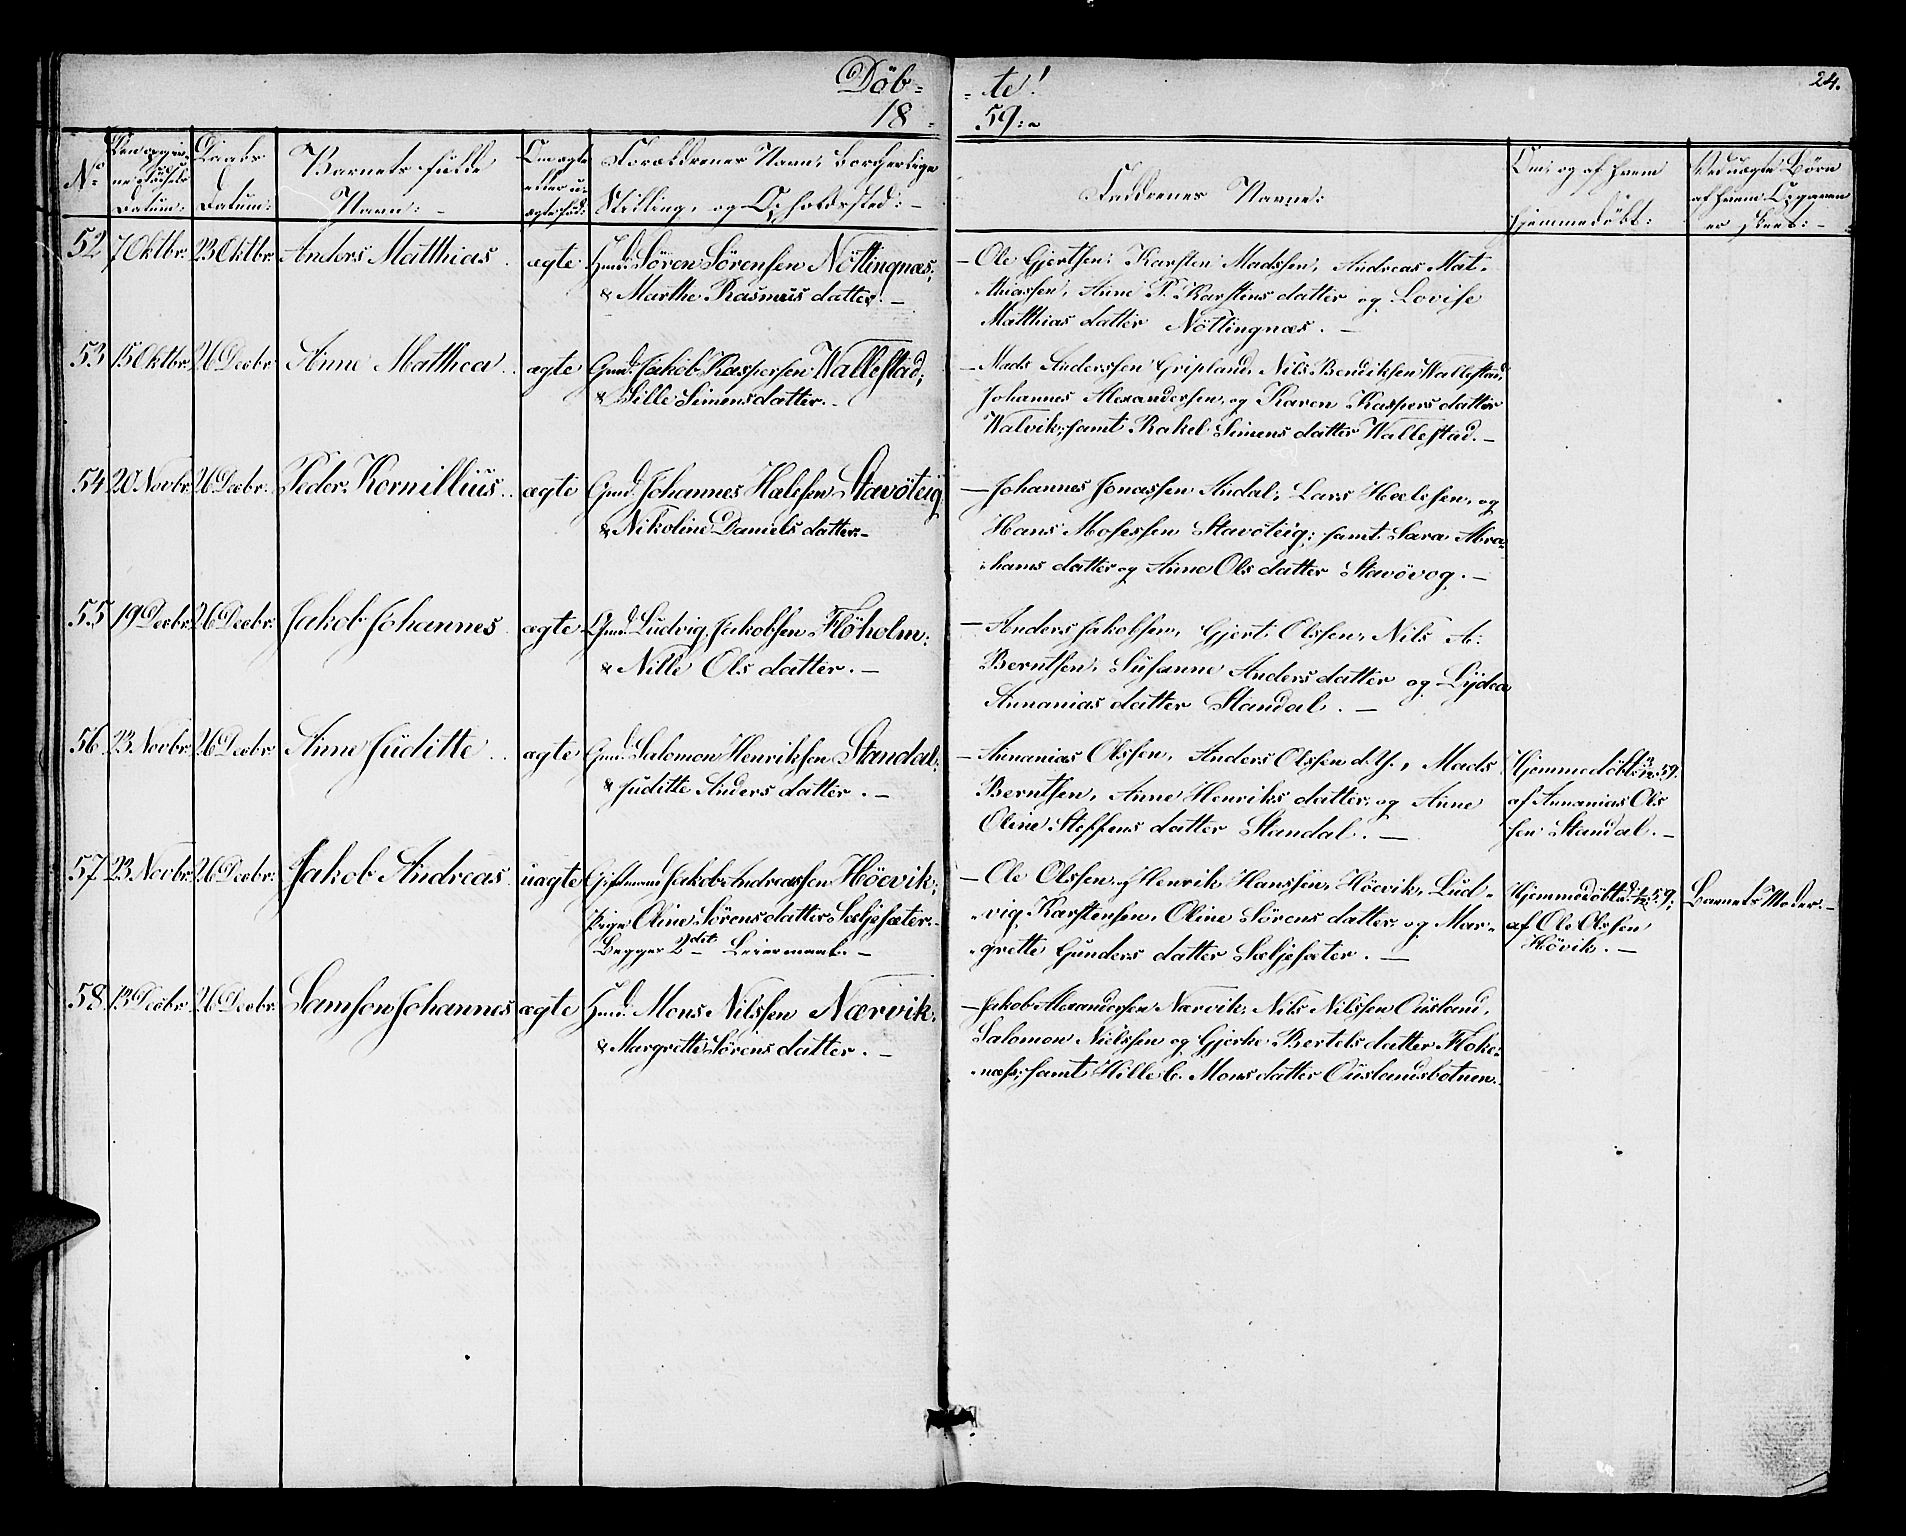 Döb- -te!
24.
18- 59:
No
Den opgiv-
ne Födsels
Datum:
Daabs
Datum:
Barnets fulde
Navn:-
Om ægte
eller u-
ægte föd:
Forældrenes Navn, borgerlige
Stilling, og Opholdssted:-
Faddrenes Navne:
Om, og af hvem
hjemmedöbt:
Ved uægte Börn
af hvem Opgaven
er skeet:-
52 7 Oktbr. 23 Oktbr. Anders Matthias. ægte Gmd. Sören Sörensen Nöttingnæs;
& Marthe Rasmus datter.-
- Ole Gjertsen, Karsten Madssen, Andreas Mat-
thiassen, Anne P. Karstens datter og Lovise
Matthias datter Nöttingnæs.-
53 15 Oktbr. 26 Decbr. Anne Matthea. ægte Gmd. Jakob Kaspersen Wallestad;
& Sille Simonsdatter.-
- Mads Anderssen Gripland, Nils Bendiksen Wallestad,
Johannes Alexandersen, og Karen Kaspers datter
Walvik; samt Rakel Simens datter Wallestad.-
54 20 Novbr. 26 Decbr. Peder Kornillius. ægte Gmd. Johannes Hælesen Stavöteig
& Nikoline Daniels datter:-
- Johannes Jonassen Andal, Lars Hælesen, og
Hans Mosessen Stavöteig; samt Sara Abra-
hams datter og Anne Ols datter Stavövog.-
55 19 Decbr. 26 Decbr. Jakob Johannes ægte Gmd. Ludvig Jakobsen Flöholm;
& Nille Ols datter.-
- Anders Jakobsen, Gjert Olssen, Nils A.
Berntsen, Susanne Anders datter og Lydea
Annanias datter Standal.-
56 23. Novbr. 26 Decbr. Anne Juditte. ægte Gmd. Salomon Henriksen Standal;
& Juditte Anders datter.-
- Annanias Olssen, Anders Olssen d.Y., Mads
Berntsen, Anne Henriks datter, og Anne
Oline Steffens datter Standal.-
Hjemmedöbt 59.
af Annanias Ols
sen Standal.-
57 23 Novbr. 26 Decbr. Jakob Andreas. uægte Giftmand Jakob Andreassen Höevik;
Pige Oline Sörensdatter Sæljesæter.-
Begges 2det Leiermaal.-
- Ole Olssen, Henrik Hanssen, Höevik, Lud-
vig Karstensen, Oline Sörens datter, og Mar-
grette Gunders datter Sæljesæter.-
Hjemmedöbt 59;
af Ole Olssen
Hövik.-
Barnets Moder.-
58. 13 Decbr. 26 Decbr. Samson Johannes ægte Gmd. Mons Nilssen Nærvik.
& Margrette Sörens datter.-
- Jakob Alexandersen Nærvik, Nils Nilssen Ousland,
Salomon Nielssen og Gjerke Bertels datter Floke-
næs; samt Hilleb. Mons datter Ouslandsbotnen.